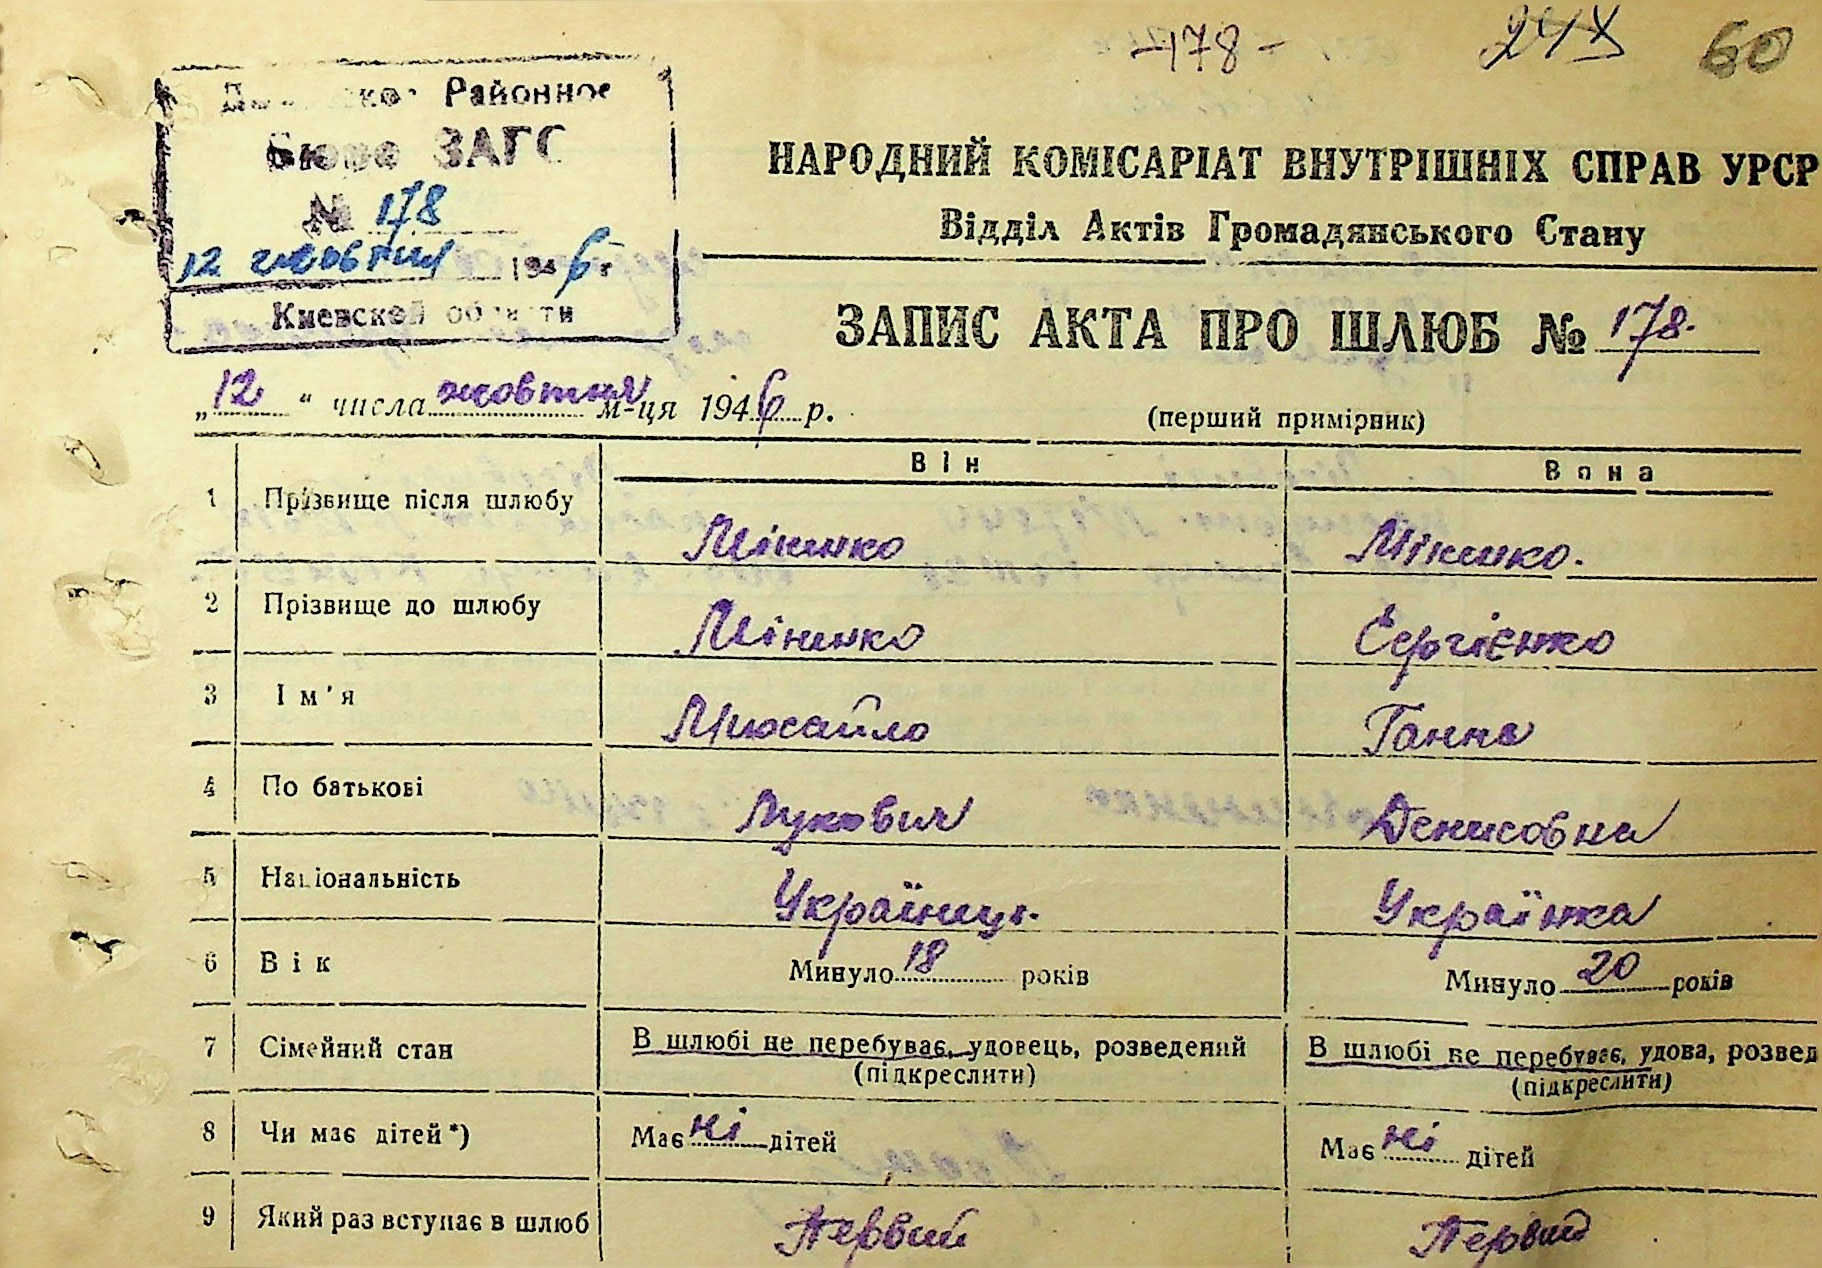 -178- 24 X 60
Районное
Бюро ЗАГС
№ 178
12 жовтня 1946 г
Киевской области
НАРОДНИЙ КОМІСАРІАТ ВНУТРІШНІХ СПРАВ УРСР
Відділ Актів Громадянського Стану
ЗАПИС АКТА ПРО ШЛЮБ № 178.
„12“ числа жовтня м-ця 1946 р.
(перший примірник)
Він Вона
1 Прізвище після шлюбу Міненко Міненко.
2 Прізвище до шлюбу Міненко Сергієнко
3 Ім'я Михайло Ганна
4 По батькові Лукович Денисовна
5 Національність Українець. Українка
6 Вік Минуло 18 років Минуло 20 років
7 Сімейний стан В шлюбі не перебуває, удовець, розведений В шлюбі не перебуває, удова, розвед
(підкреслити) (підкреслити)
8 Чи має дітей*) Має ні дітей Має ні дітей
9 Який раз вступає в шлюб Первий Первий